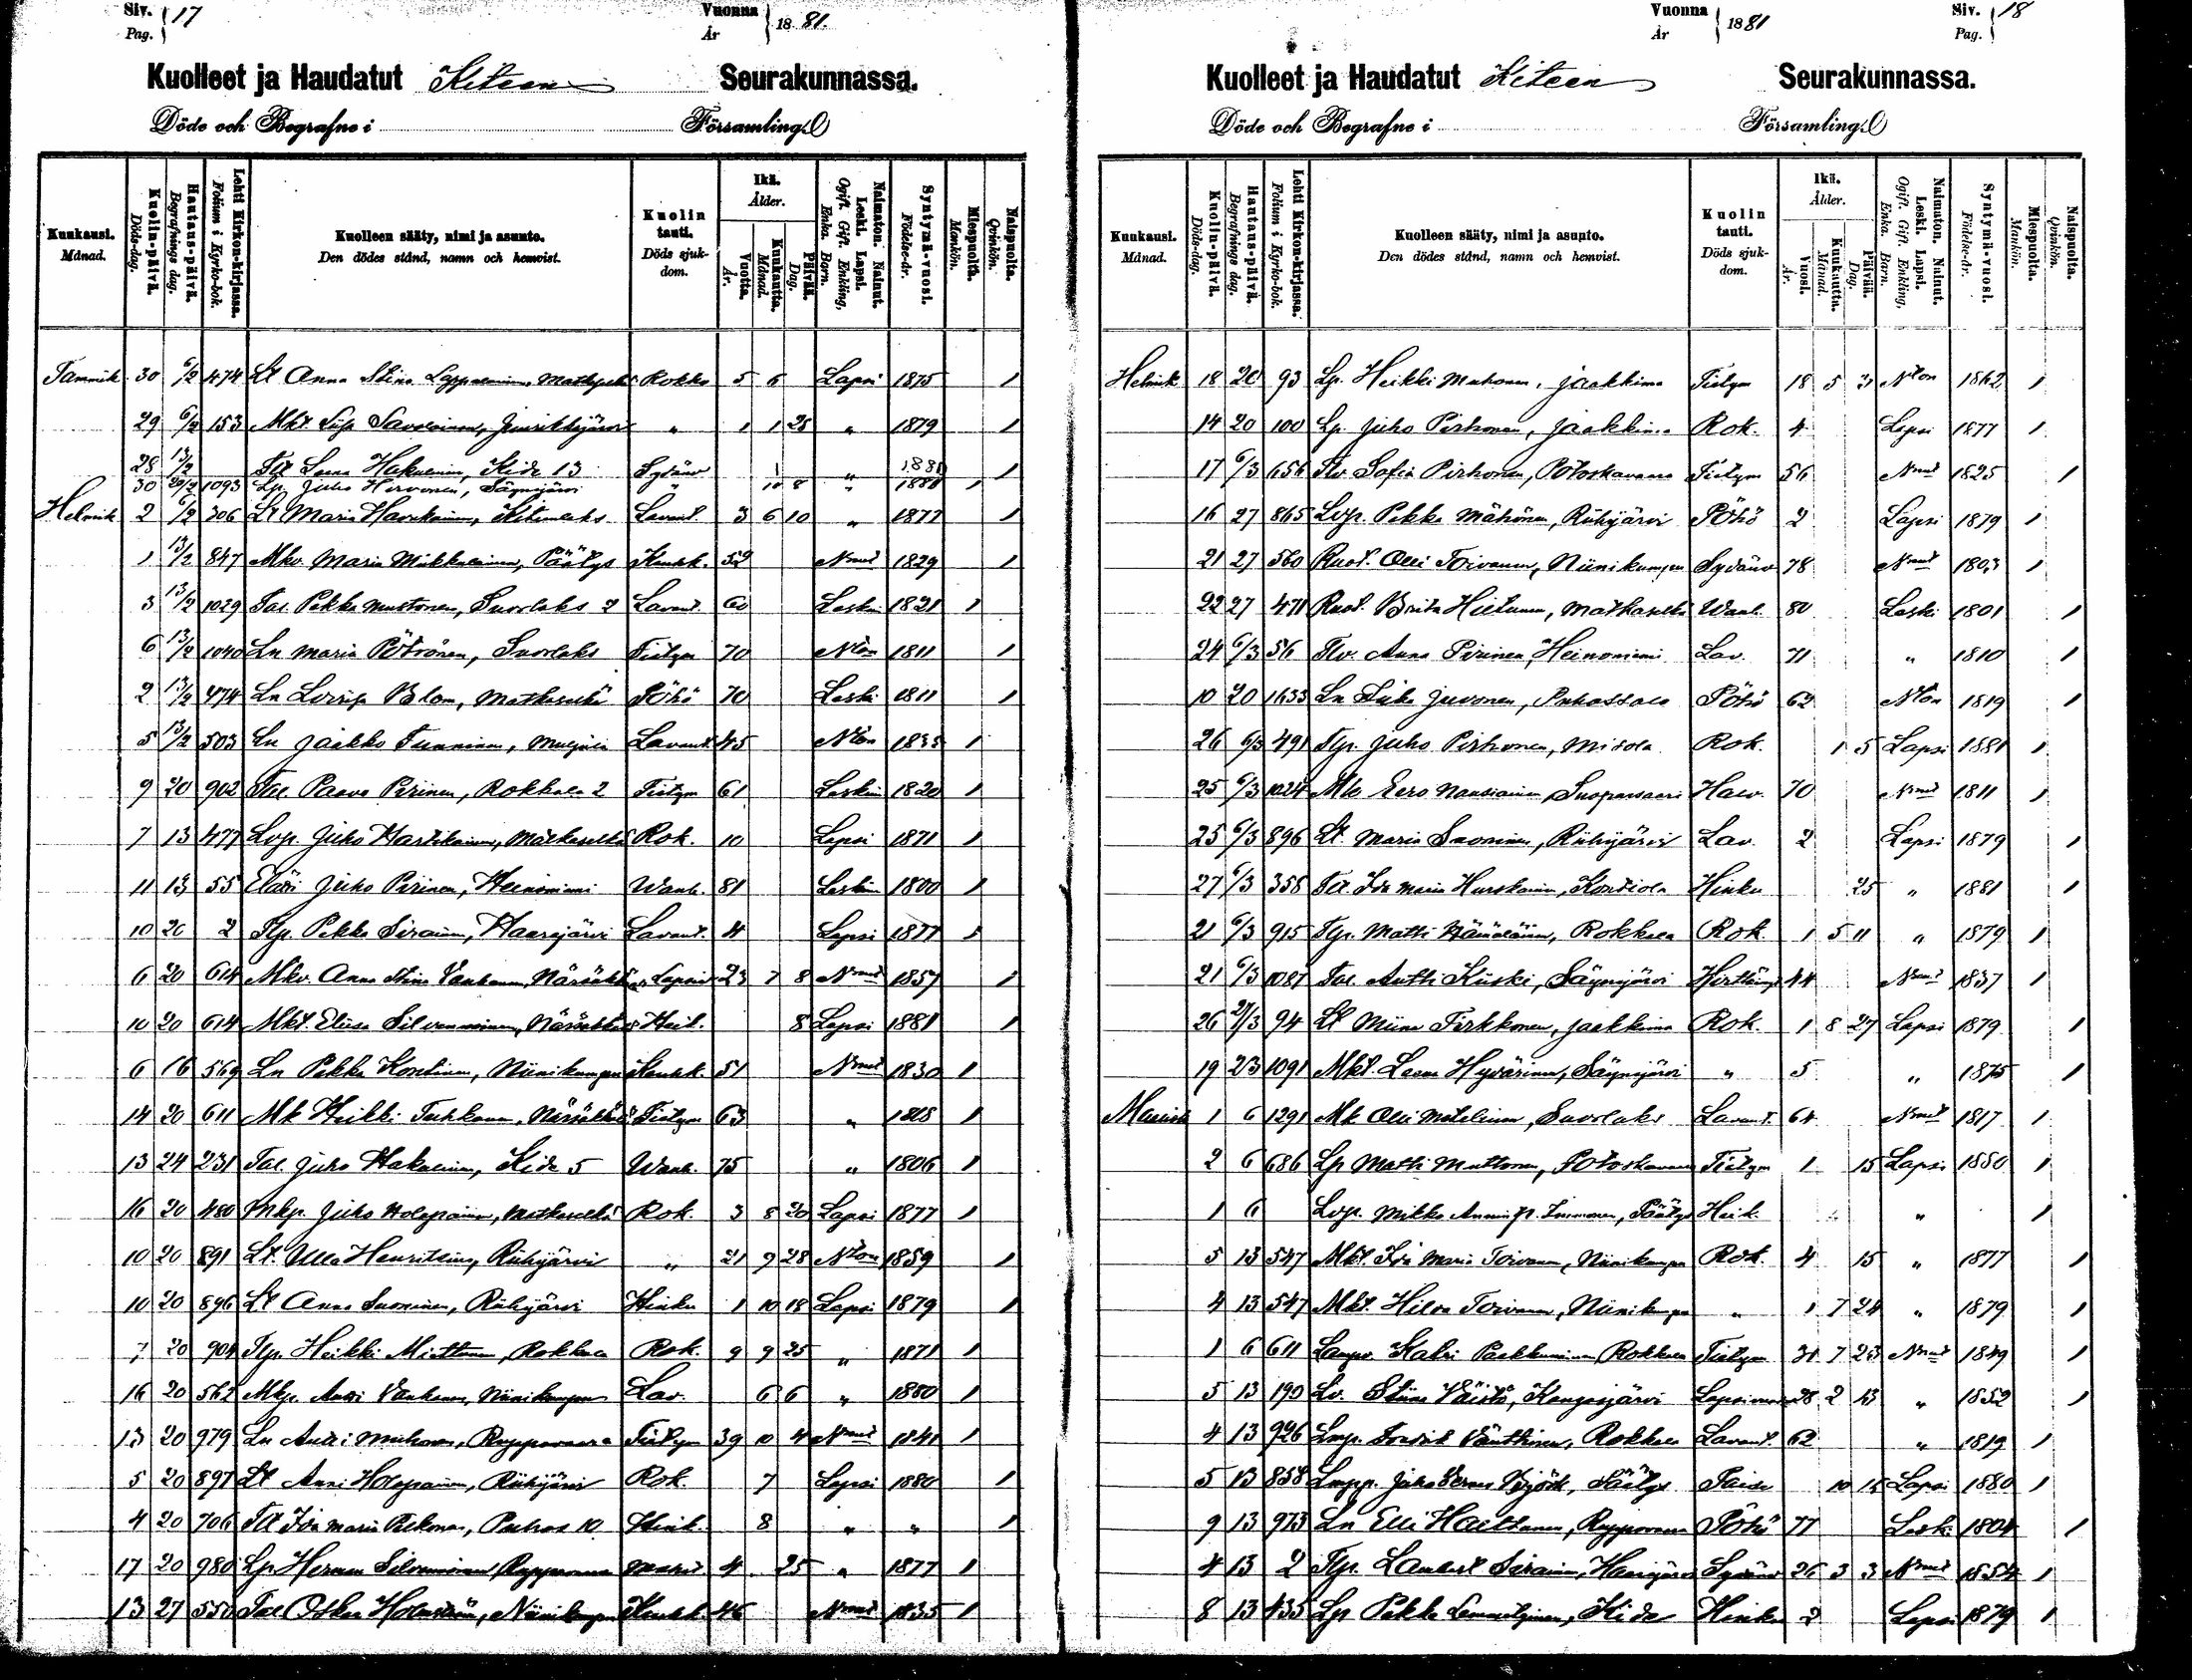 Siv. 17
Pag.
Vuonna 1881.
År
Kuolleet ja Haudatut Kiteen Seurakunnassa.
Döde och Begrafne i Församling.
Kuukausi. Månad.
Kuolin-päivä. Döds-dag.
Hautaus-päivä. Begrafnings dag.
Lehti Kirkon-kirjassa. Folium i Kyrko-bok.
Kuolleen sääty, nimi ja asunto. Den dödes stånd, namn och hemvist.
Kuolin tauti. Döds sjukdom.
Ikä. Ålder.
Vuotta. År.
Kuukautta. Månad.
Päivää. Dag.
Naimaton. Nainut. Leski. Lapsi. Ogift. Gift. Enkling, Enka. Barn.
Syntymä-vuosi. Födelse-år.
Miespuolta. Mankön.
Naispuolta. Qvinkön.
Tammik. 30 6/2 474 Lt Anna Stina Lappalainen, Rokko 5 6 Lapsi 1875 1
29 6/2 153 Mkt. Savolainen, " 1 1 25 " 1879 1
28 13/2 Tlt Leena Hakulinen, Kide 13 Sydäw 1 " 1881 1
30 20/2 1093 Lp. Juho Hirvonen, Säynejärvi " 10 8 " 1880 1
Helmik 2 6/2 306 Lt Maria Havukainen, Kiteenlaks Lavant. 3 6 10 " 1877 1
1 13/2 847 Mkv. Maria Mikkolainen, Päätys Keuhk. 52 Nnut 1829 1
3 13/2 1029 Tal. Pekka Mustonen, Suorlaks 2 Lavant. 60 Leski 1821 1
6 13/2 1040 Ln Maria Pötrönen, Suorlaks Tistym 70 Nton 1811 1
2 13/2 474 Ln Lovisa Blom, Matkaselkä Pöhö 70 Leski 1811 1
5 13/2 503 Ln Jaakko Tunninen, Lavant. 45 Nton 1835 1
9 20 902 Tal. Paavo Pirinen, Rokkala 2 Tistym 61 Leski 1820 1
7 13 477 Lvp. Juho Hartikainen, Matkaselkä Rok. 10 Lapsi 1871 1
11 13 55 Eläri Juho Pirinen, Heinoniemi Wanh. 81 Leski 1800 1
10 20 2 Tlp. Pekka Sirainen, Haarajärvi Lavant. 4 Lapsi 1877 1
6 20 614 Mkv. Anna Stina Vanhanen, Närsäkkälä Lapsiw 23 7 8 Nnut 1857 1
10 20 614 Mkt. Eliisa Silvennoinen, Närsäkkälä Heik. 8 Lapsi 1881 1
6 16 569 Ln Pekka Kontinen, Niinikumpu Keuhk. 51 Nnut 1830 1
14 20 611 Mk Heikki Tuhkanen, Närsäkkälä Tistym 63 " 1818 1
13 24 231 Tal. Juho Hakulinen, Kide 5 Wanh. 75 " 1806 1
16 20 480 Mkp. Juho Holopainen, Matkaselkä Rok. 3 8 20 Lapsi 1877 1
10 20 891 Lt. Ulla Henritsiny, Riihijärvi " 21 9 28 Nton 1859 1
10 20 896 Lt Anna Suoninen, Riihijärvi Hinku 1 10 18 Lapsi 1879 1
7 20 904 Tlp. Heikki Miettinen, Rokkala Rok. 9 9 25 " 1871 1
16 20 562 Mkp. Antti Vanhanen, Niinikumpu Lav. 6 6 " 1880 1
13 20 979 Ln Antti Muhonen, Ruppovaara Tistym 39 10 4 Nnut 1841 1
5 20 897 Lt Anni Holopainen, Riihijärvi Rok. 7 Lapsi 1880 1
4 20 706 Tlt Ida Maria Pelkonen, Puhos 10 Hink. 8 " " 1
17 20 980 Lp. Herman Silvennoinen Ruppovaara 4 25 " 1877 1
13 27 550 Tal Oskar Holmström, Niinikumpu Keuhk. 46 Nnut 1835 1
Vuonna 1881
År
Siv. 18
Pag.
Kuolleet ja Haudatut Kiteen Seurakunnassa.
Döde och Begrafne i Församling.
Kuukausi. Månad.
Kuolin-päivä. Döds-dag.
Hautaus-päivä. Begrafnings dag.
Lehti Kirkon-kirjassa. Folium i Kyrko-bok.
Kuolleen sääty, nimi ja asunto. Den dödes stånd, namn och hemvist.
Kuolin tauti. Döds sjukdom.
Ikä. Ålder.
Vuosi. År.
Kuukautta. Månad.
Päivää. Dag.
Naimaton. Nainut. Leski. Lapsi. Ogift. Gift. Enkling, Enka. Barn.
Syntymä-vuosi. Födelse-år.
Miespuolta. Mankön.
Naispuolta. Qvinkön.
Helmik 18 20 93 Lp. Heikki Muhonen, Jaakkima Tistym 18 5 21 Nton 1862 1
14 20 100 Lp. Juho Pirhonen, Jaakkima Rok. 4 Lapsi 1877 1
17 6/3 656 Tlv. Sofia Pirhonen, Potoskavaara Tistym 56 Nnut 1825 1
16 27 865 Lvp. Pekka Mähönen, Riihijärvi Pöhö 2 Lapsi 1879 1
21 27 560 Ruot. Olli Toivanen, Niinikumpu Sydäw 78 Nnut 1803 1
22 27 471 Ruot. Brita Hietanen, Matkaselkä Wanh. 80 Leski 1801 1
24 6/3 56 Tlv. Anna Pirinen, Heinoniemi Lav. 71 " 1810 1
10 20 1633 Ln Liika Juvonen, Puhossalo Pöhö 62 Nton 1819 1
26 6/3 491 Tlp. Juho Pirhonen, Misola Rok. 1 5 Lapsi 1881 1
25 6/3 1024 Mk Eero Nousiainen, Suoparsaari Halv. 70 Nnut 1811 1
25 6/3 896 Lt. Maria Suoninen, Riihijärvi Lav. 2 Lapsi 1879 1
27 6/3 358 Tlt. Ida Maria Hurskainen, Kontiola Hinku 25 " 1881 1
21 6/3 915 Tlp. Matti Hämäläinen, Rokkala Rok. 1 5 11 " 1879 1
21 6/3 1087 Tal. Antti Kiiski, Säynejärvi 44 Nnut 1837 1
26 27/3 94 Lt Miina Tirkkonen, Jaakkima Rok. 1 8 27 Lapsi 1879 1
19 23 1091 Mkt. Leena Hyvärinen, Säynejärvi " 5 " 1875 1
Maalisk 1 6 1291 Mk Olli Matilainen, Suorlaks Lavant. 64 Nnut 1817 1
2 6 686 Lp Matti Muttonen, Potoskavaara Tistym 1 15 Lapsi 1880 1
1 6 Lvp. Mikko Annin p. Immonen, Päätys Heik. " 1
5 13 547 Mkt. Ida Maria Toivanen, Niinikumpu Rok. 4 15 " 1877 1
4 13 547 Mkt. Hilda Toivanen, Niinikumpu " 1 7 24 " 1879 1
1 6 611 Lampv. Katri Pakkuninen Rokkala Tistym 31 7 23 Nnut 1849 1
5 13 190 Lv. Stiina Väistö, Kangasjärvi 28 2 13 " 1852 1
4 13 926 Lmp. Fredrik Vänttinen, Rokkala Lavant. 62 " 1819 1
5 13 858 Lmpp. Juho Björk, Päätys Paise 10 15 Lapsi 1880 1
9 13 973 Ln Elli Haettanen, Ruppovaara Pöhö 77 Leski 1804 1
4 13 2 Tlp. Lambert Sirainen, Haarajärvi Sydäw 26 3 3 Nnut 1854 1
8 13 435 Lp Pekka Lemmitynen, Kide Hinku 2 Lapsi 1879 1